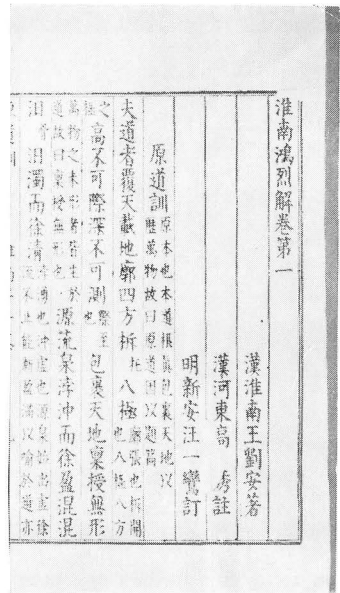 淮南鴻烈解卷第一
漢淮南王劉安著
漢河東高 誘註
明新安汪一鸞訂
原道訓 原本也本道根真包裹天地以歷萬物故曰原道因以題篇
夫道者覆天載地廓四方柝八極 廓張也柝開也八極八方之
極 高不可際深不可測 際至也 包裹天地稟授無形
萬物之未形者皆生於道故曰稟授無形也 源流泉浡沖而徐盈混
汩汩濁而徐清